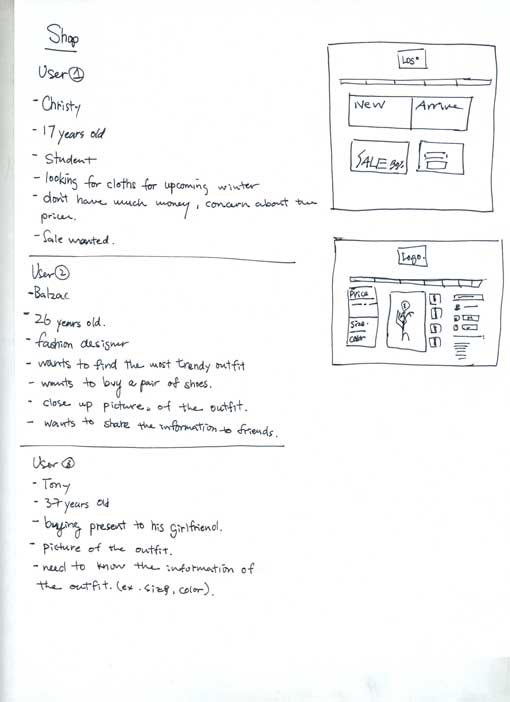 Shop
User ①
- Christy
- 17 years old
- Student
- looking for cloths for upcoming winter
- don't have much money, concern about the
prices.
- Sale wanted.
User ②
- Balzac
- 26 years old.
- fashion designer
- wants to find the most trendy outfit
- wants to buy a pair of shoes.
- close up pictures of the outfit.
- wants to share the information to friends.
User ③
- Tony
- 37 years old
- buying present to his girlfriend.
- picture of the outfit.
- need to know the information of
the outfit. (ex. size, color).
Logo
New Arrive
SALE 30%
Logo.
Price
Size.
Color